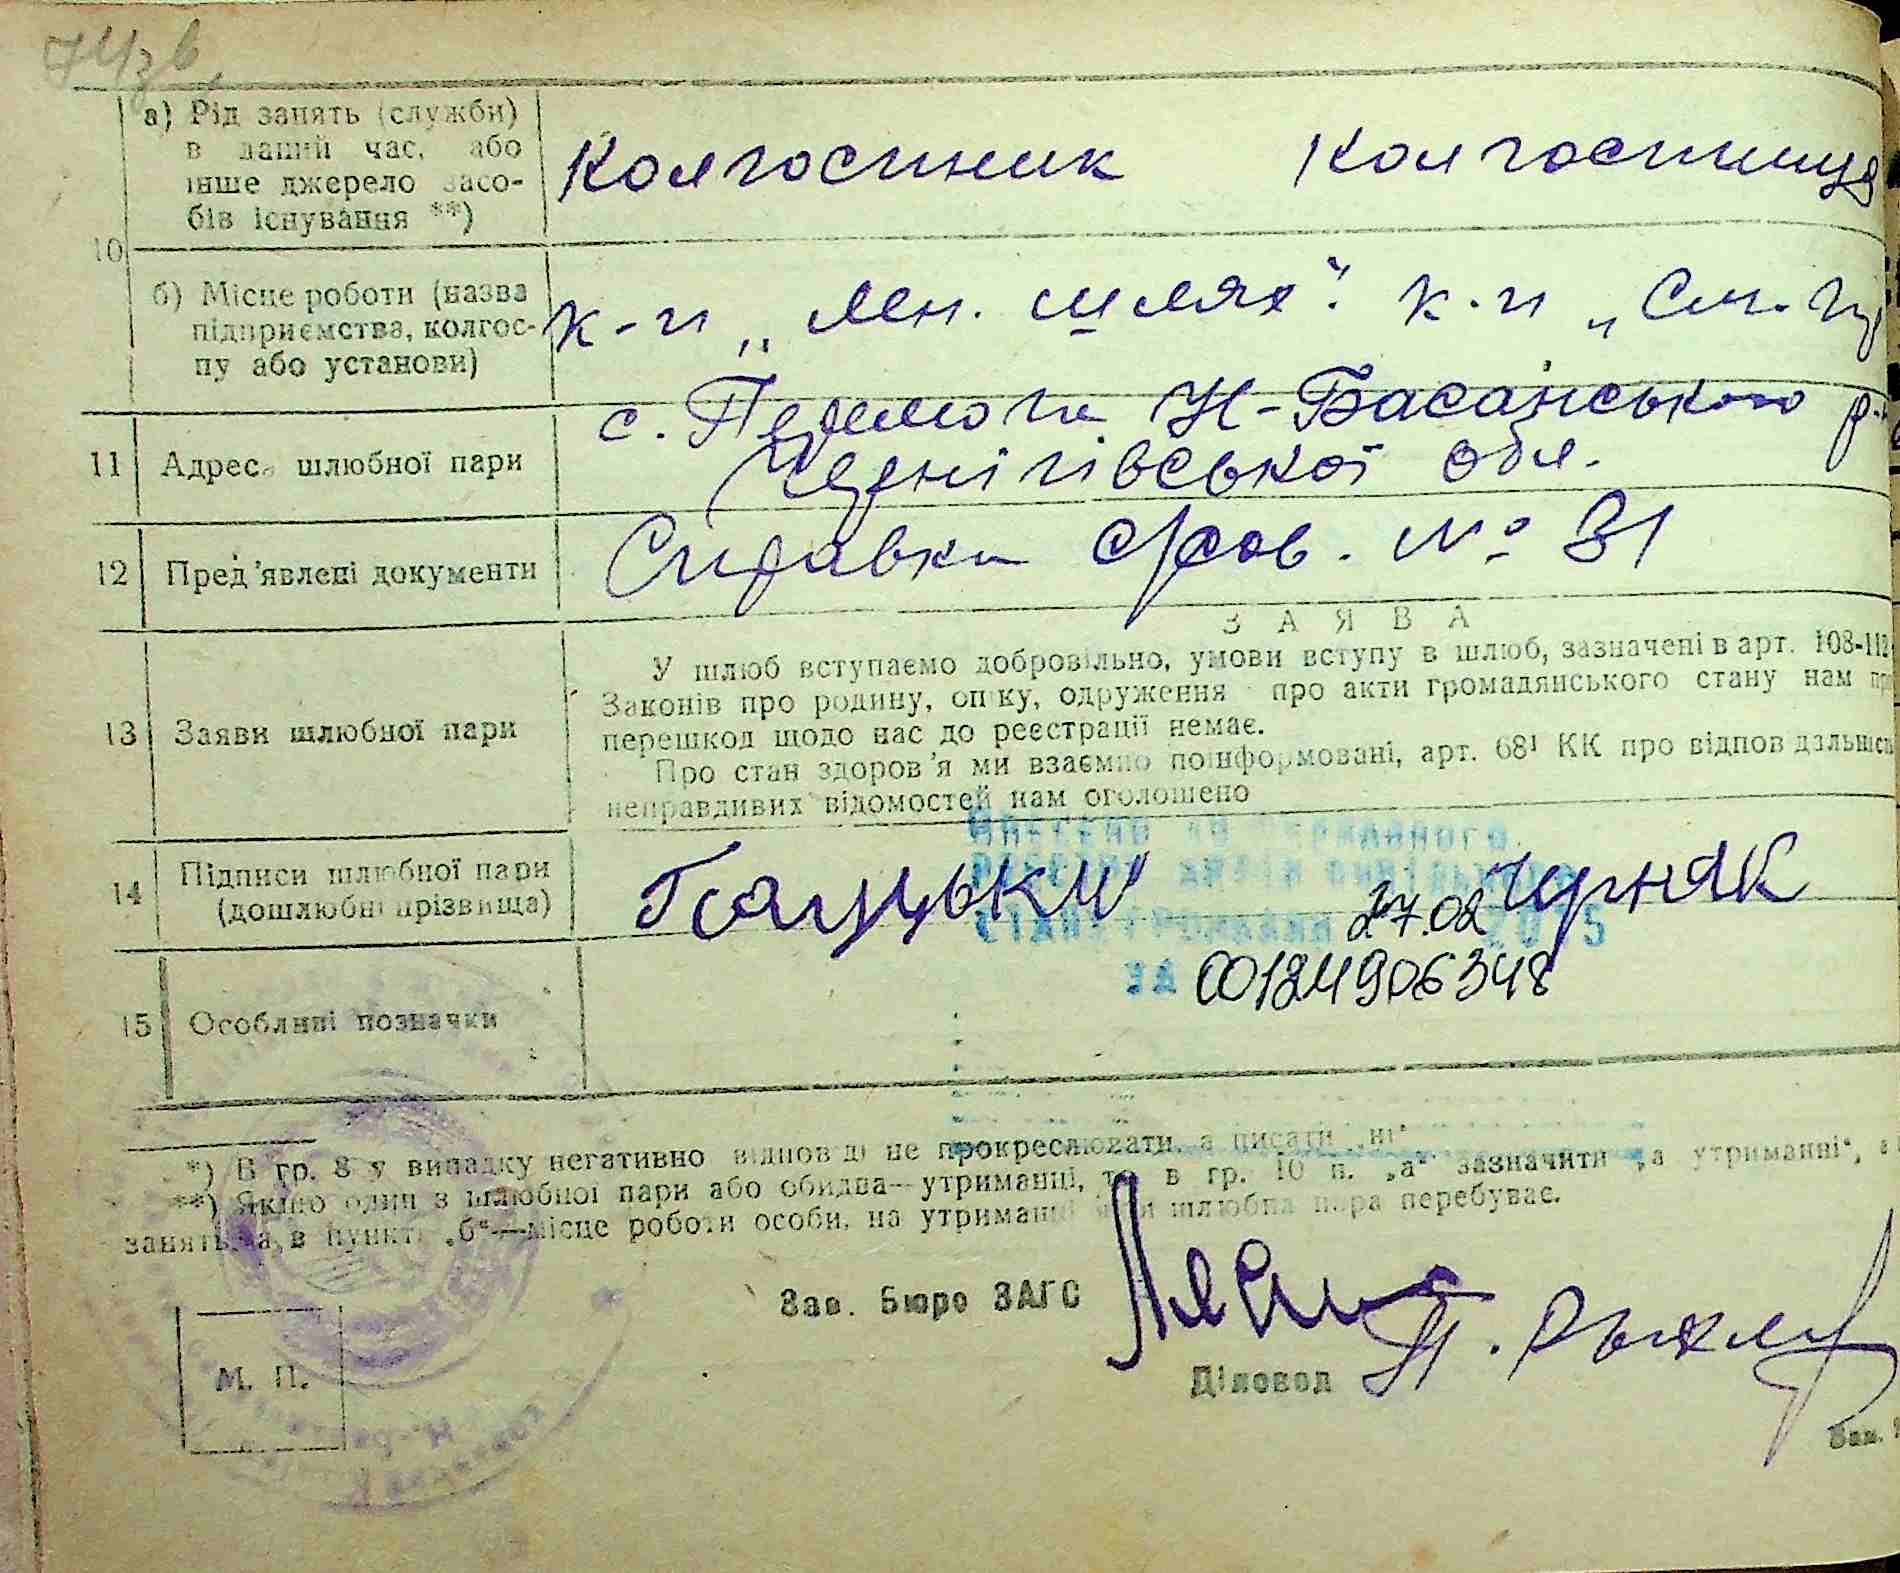 а) Рід занять (служби)
в даний час, або
інше джерело засо-
бів існування **)
Колгоспник Колгоспниця
10
б) Місце роботи (назва
підприємства, колгос-
пу або установи)
к-п „Лен. шлях". к-п „См.
11 Адреса шлюбної пари
с. Перемога Н-Басанського р-
Чернігівської обл.
12 Пред'явлені документи
Справка с/сов. № 31
ЗАЯВА
13 Заяви шлюбної пари
У шлюб вступаємо добровільно, умови вступу в шлюб, зазначені в арт. 108-112
Законів про родину, опіку, одруження про акти громадянського стану нам
перешкод щодо нас до реєстрації немає.
Про стан здоров'я ми взаємно поінформовані, арт. 68¹ КК про відповідальність
неправдивих відомостей нам оголошено
14 Підписи шлюбної пари
(дошлюбні прізвища)
Чурняк
27.02 2015
001249906348
15 Особливі позначки
*) В гр. 8 у випадку негативно відповіді не прокреслювати, а писати „ні"
**) Якщо один з шлюбної пари або обидва—утриманці, то в гр. 10 п. „а" зазначити „а утриманні",
занять, а в пункті „б"—місце роботи особи, на утриманні якої шлюбна пара перебуває.
Зав. Бюро ЗАГС
Діловод
М. П.
Зам.